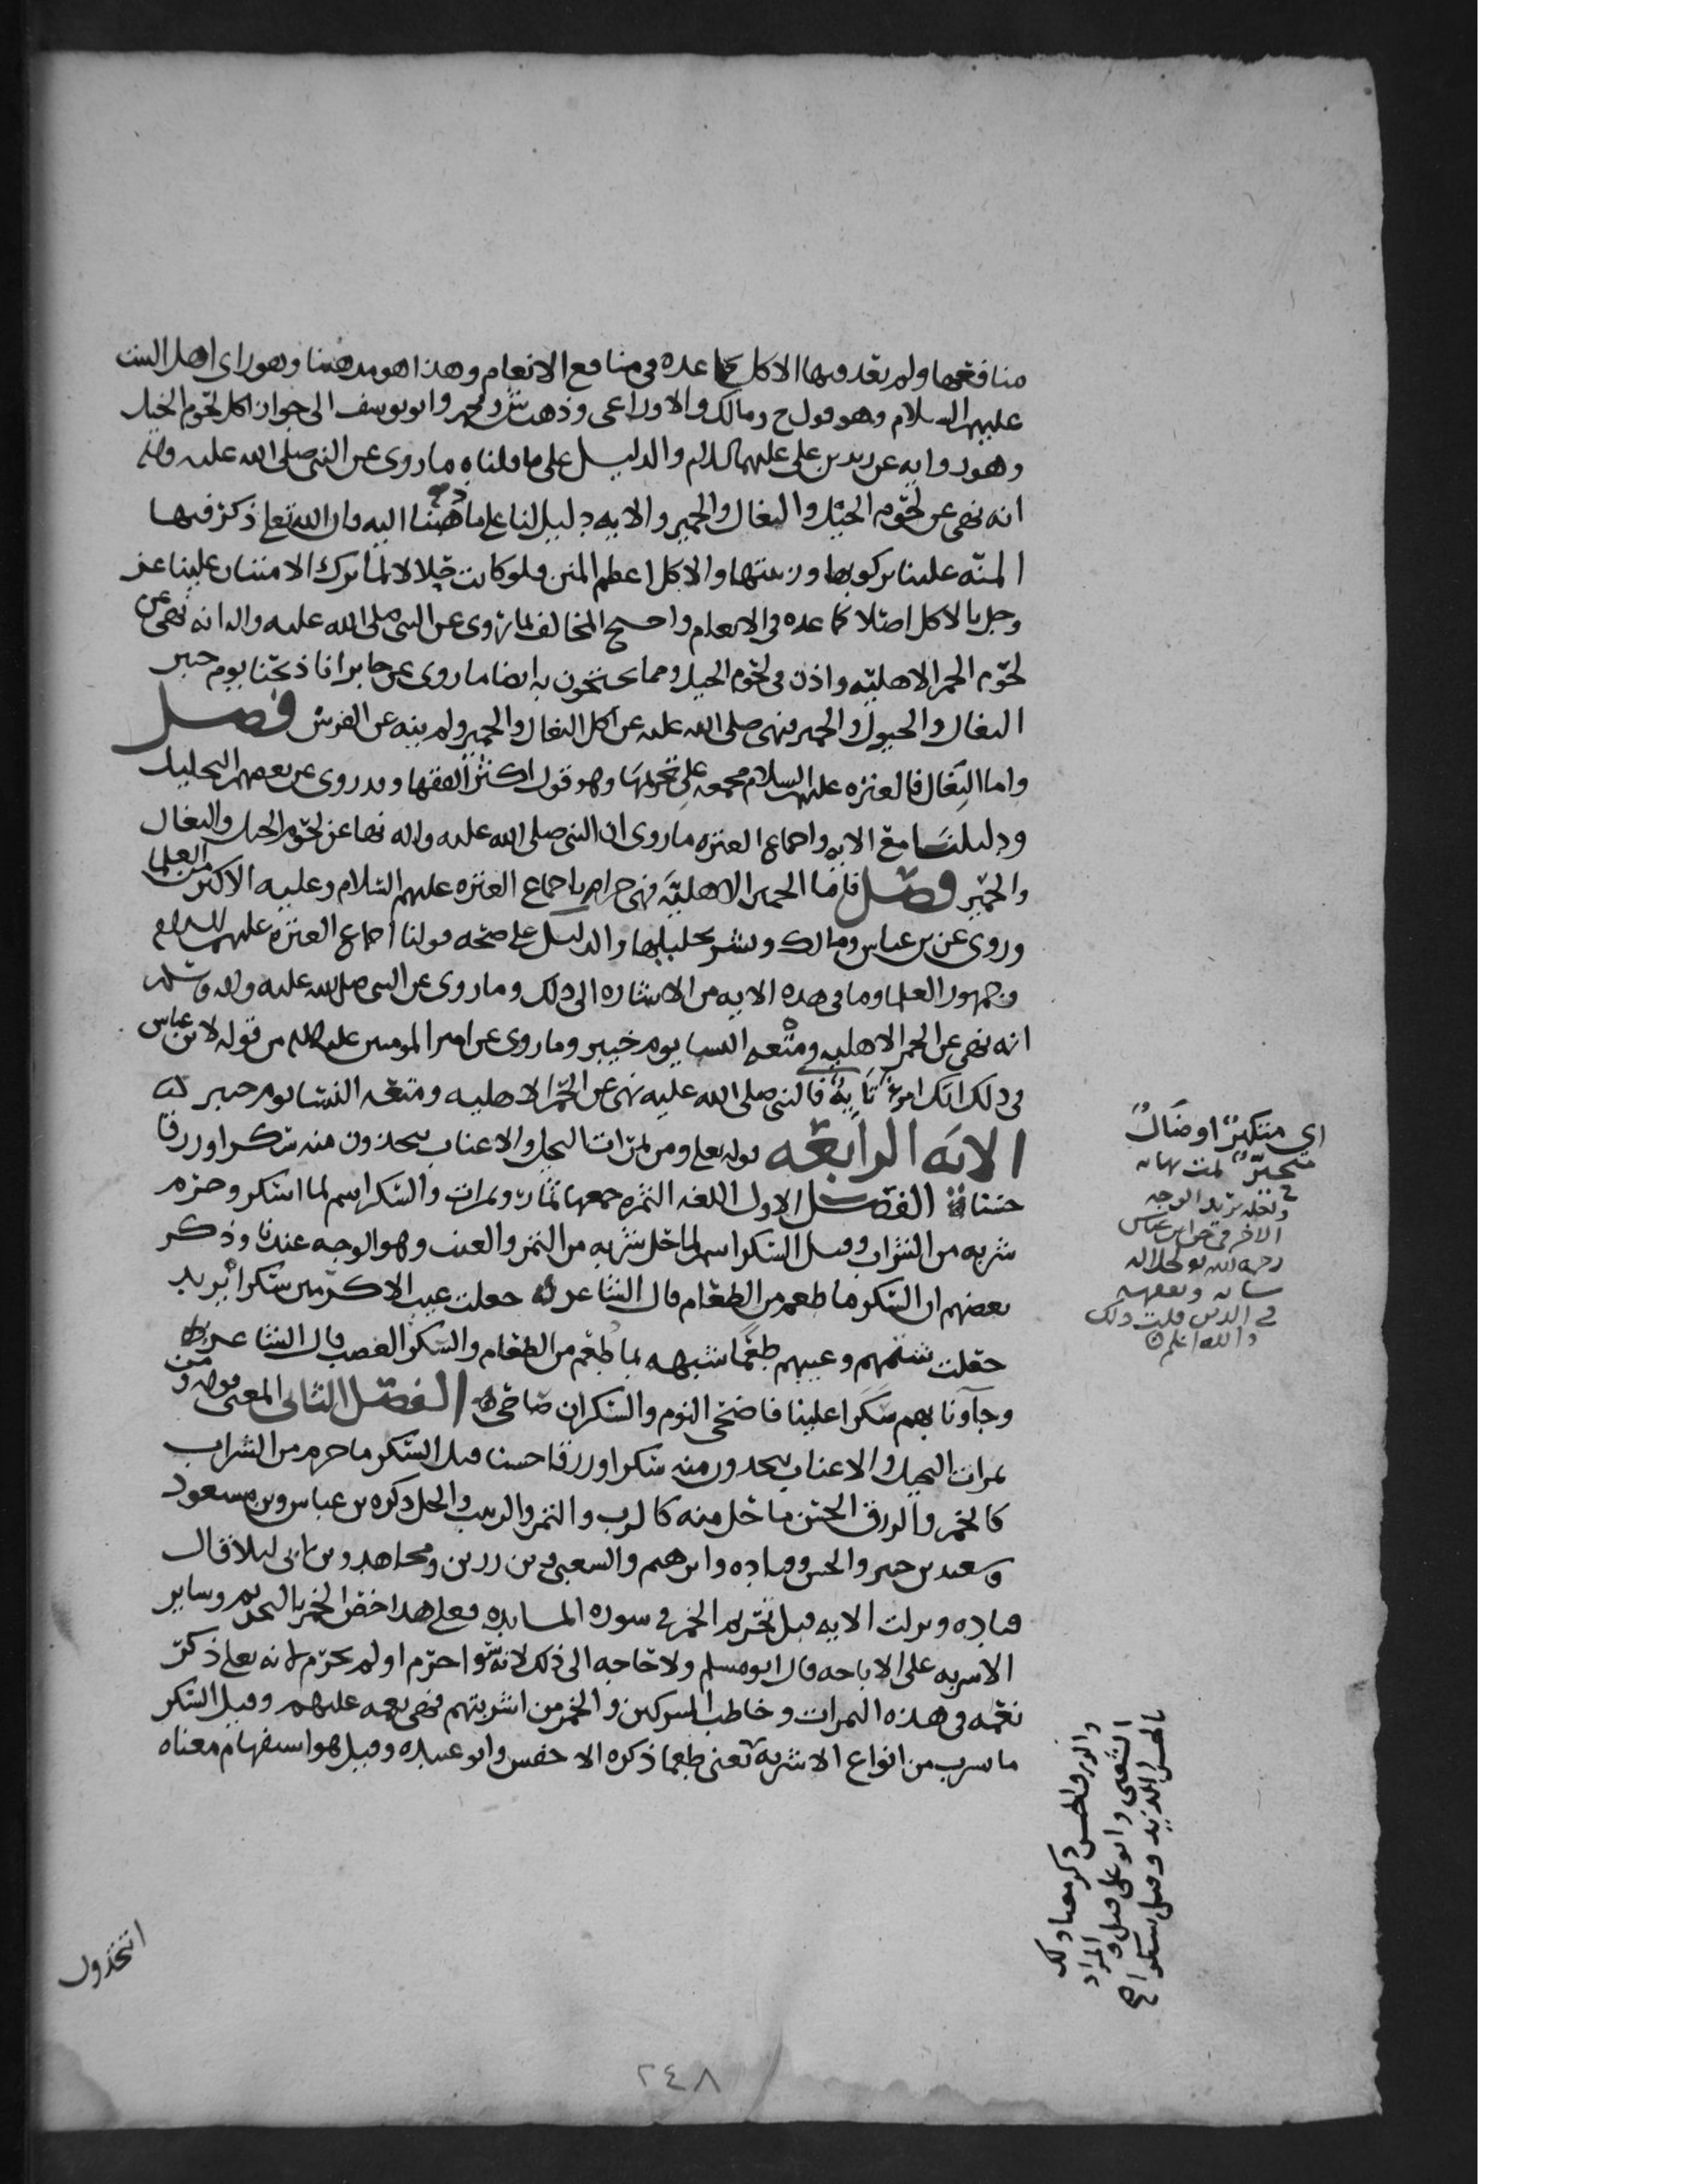 منافعها ولم يعد فيها الاكل كما عده في منافع الانعام وهذا هو مذهبنا وهو راي اهل البيت
عليهم السلام وهو قول ح ومالك والاوزاعي وذهب ش ومحمد وابو يوسف الى جواز اكل لحوم الخيل
وهو رواية عن زيد بن علي عليهما السلام والدليل على ما قلناه ما روي عن النبي صلى الله عليه واله
انه نهى عن لحوم الخيل والبغال والحمير والايه دليل لنا على ما ذهبنا اليه فان الله تعلى ذكر فيها
المنه علينا بركوبها وزينتها والاكل اعظم المنن فلو كانت حلالا لما ترك الامتنان علينا عز
وجل بالاكل اصلا كما عده في الانعام واحتج المخالف لما روي عن النبي صلى الله عليه واله انه نهى عن
لحوم الحمر الاهليه واذن في لحوم الخيل ومما يحتجون به ايضا ما روي عن جابر انا ذبحنا يوم خيبر
البغال والخيول والحمير فنهى صلى الله عليه عن اكل البغال والحمير ولم ينه عن الفرس فصل
واما البغال فالعتره عليهم السلام مجمعه على تحريمها وهو قول اكثر الفقها وقد روي عن بعضهم التحليل
ودليلنا مع الايه واجماع العتره ما روي ان النبي صلى الله عليه واله نها عن لحوم الخيل والبغال
والحمير فصل فاما الحمير الاهليه فهي حرام باجماع العتره عليهم السلام وعليه الاكثر من العلما
وروي عن بن عباس ومالك وبشر تحليلها والدليل على صحه قولنا اجماع العتره عليهم السلام
وجمهور العلما وما في هذه الايه من الاشاره الى ذلك وما روي عن النبي صلى الله عليه واله وسلم
انه نهى عن الحمر الاهليه ومتعه النسا يوم خيبر وما روي عن امير المومنين عليه السلام من قوله لابن عباس
في ذلك انك امرؤ تايه فالنبي صلى الله عليه نهى عن الحمر الاهليه ومتعه النسا يوم خيبر
الايه الرابعه قوله تعلى ومن ثمرات النخيل والاعناب تتخذون منه سكرا ورزقا
حسنا الفصل الاول اللغه الثمره جمعها ثمار وثمرات والسكر اسم لما اسكر وحرم
شربه من الشراب وقيل السكر اسم لما حل شربه من التمر والعنب وهو الوجه عندنا وذكر
بعضهم ان السكر ما طعم من الطعام قال الشاعر جعلت عيب الاكرمين سكرا يريد
جعلت شتمهم وعيبهم طعما شبهه بما طعم من الطعام والسكر الغصب قال الشاعر
وجآونا بهم سكر علينا فاضحى اليوم والسكران صاحي الفصل الثاني المعنى قوله ومن
ثمرات النخيل والاعناب تتخذون منه سكرا ورزقا حسنا قيل السكر ما حرم من الشراب
كالخمر والرزق الحسن ما حل منه كالرب والتمر والزبيب والخل ذكره بن عباس وبن مسعود
وسعيد بن جبير والحسن وقتاده وابرهيم والشعبي وبن رزين ومجاهد وبن ابي ليلا قال
قتاده ونزلت الايه قبل تحريم الخمر في سوره المايده فعلى هذا اختص الخمر بالتحريم وساير
الاشربه على الاباحه قال ابو مسلم ولا حاجه الى ذلك لانه سوا حرم او لم يحرم لانه تعلى ذكر
نعمه في هذه الثمرات وخاطب المشركين والخمر من اشربتهم فهي نعمه عليهم وقيل السكر
ما شرب من انواع الاشربه يعني طعما ذكره الاخفش وابو عبيده وقيل هو استفهام معناه
اتتخذون
اي متكبر او ضال
متحير تمت نهايه
الاخر في حق ابن عباس
رحمه الله
في الدين قلت ذلك
والله اعلم
والرزق الحسن ذكر معنا ذلك
الشعبي وابو علي قيل والمراد
٢٤٨